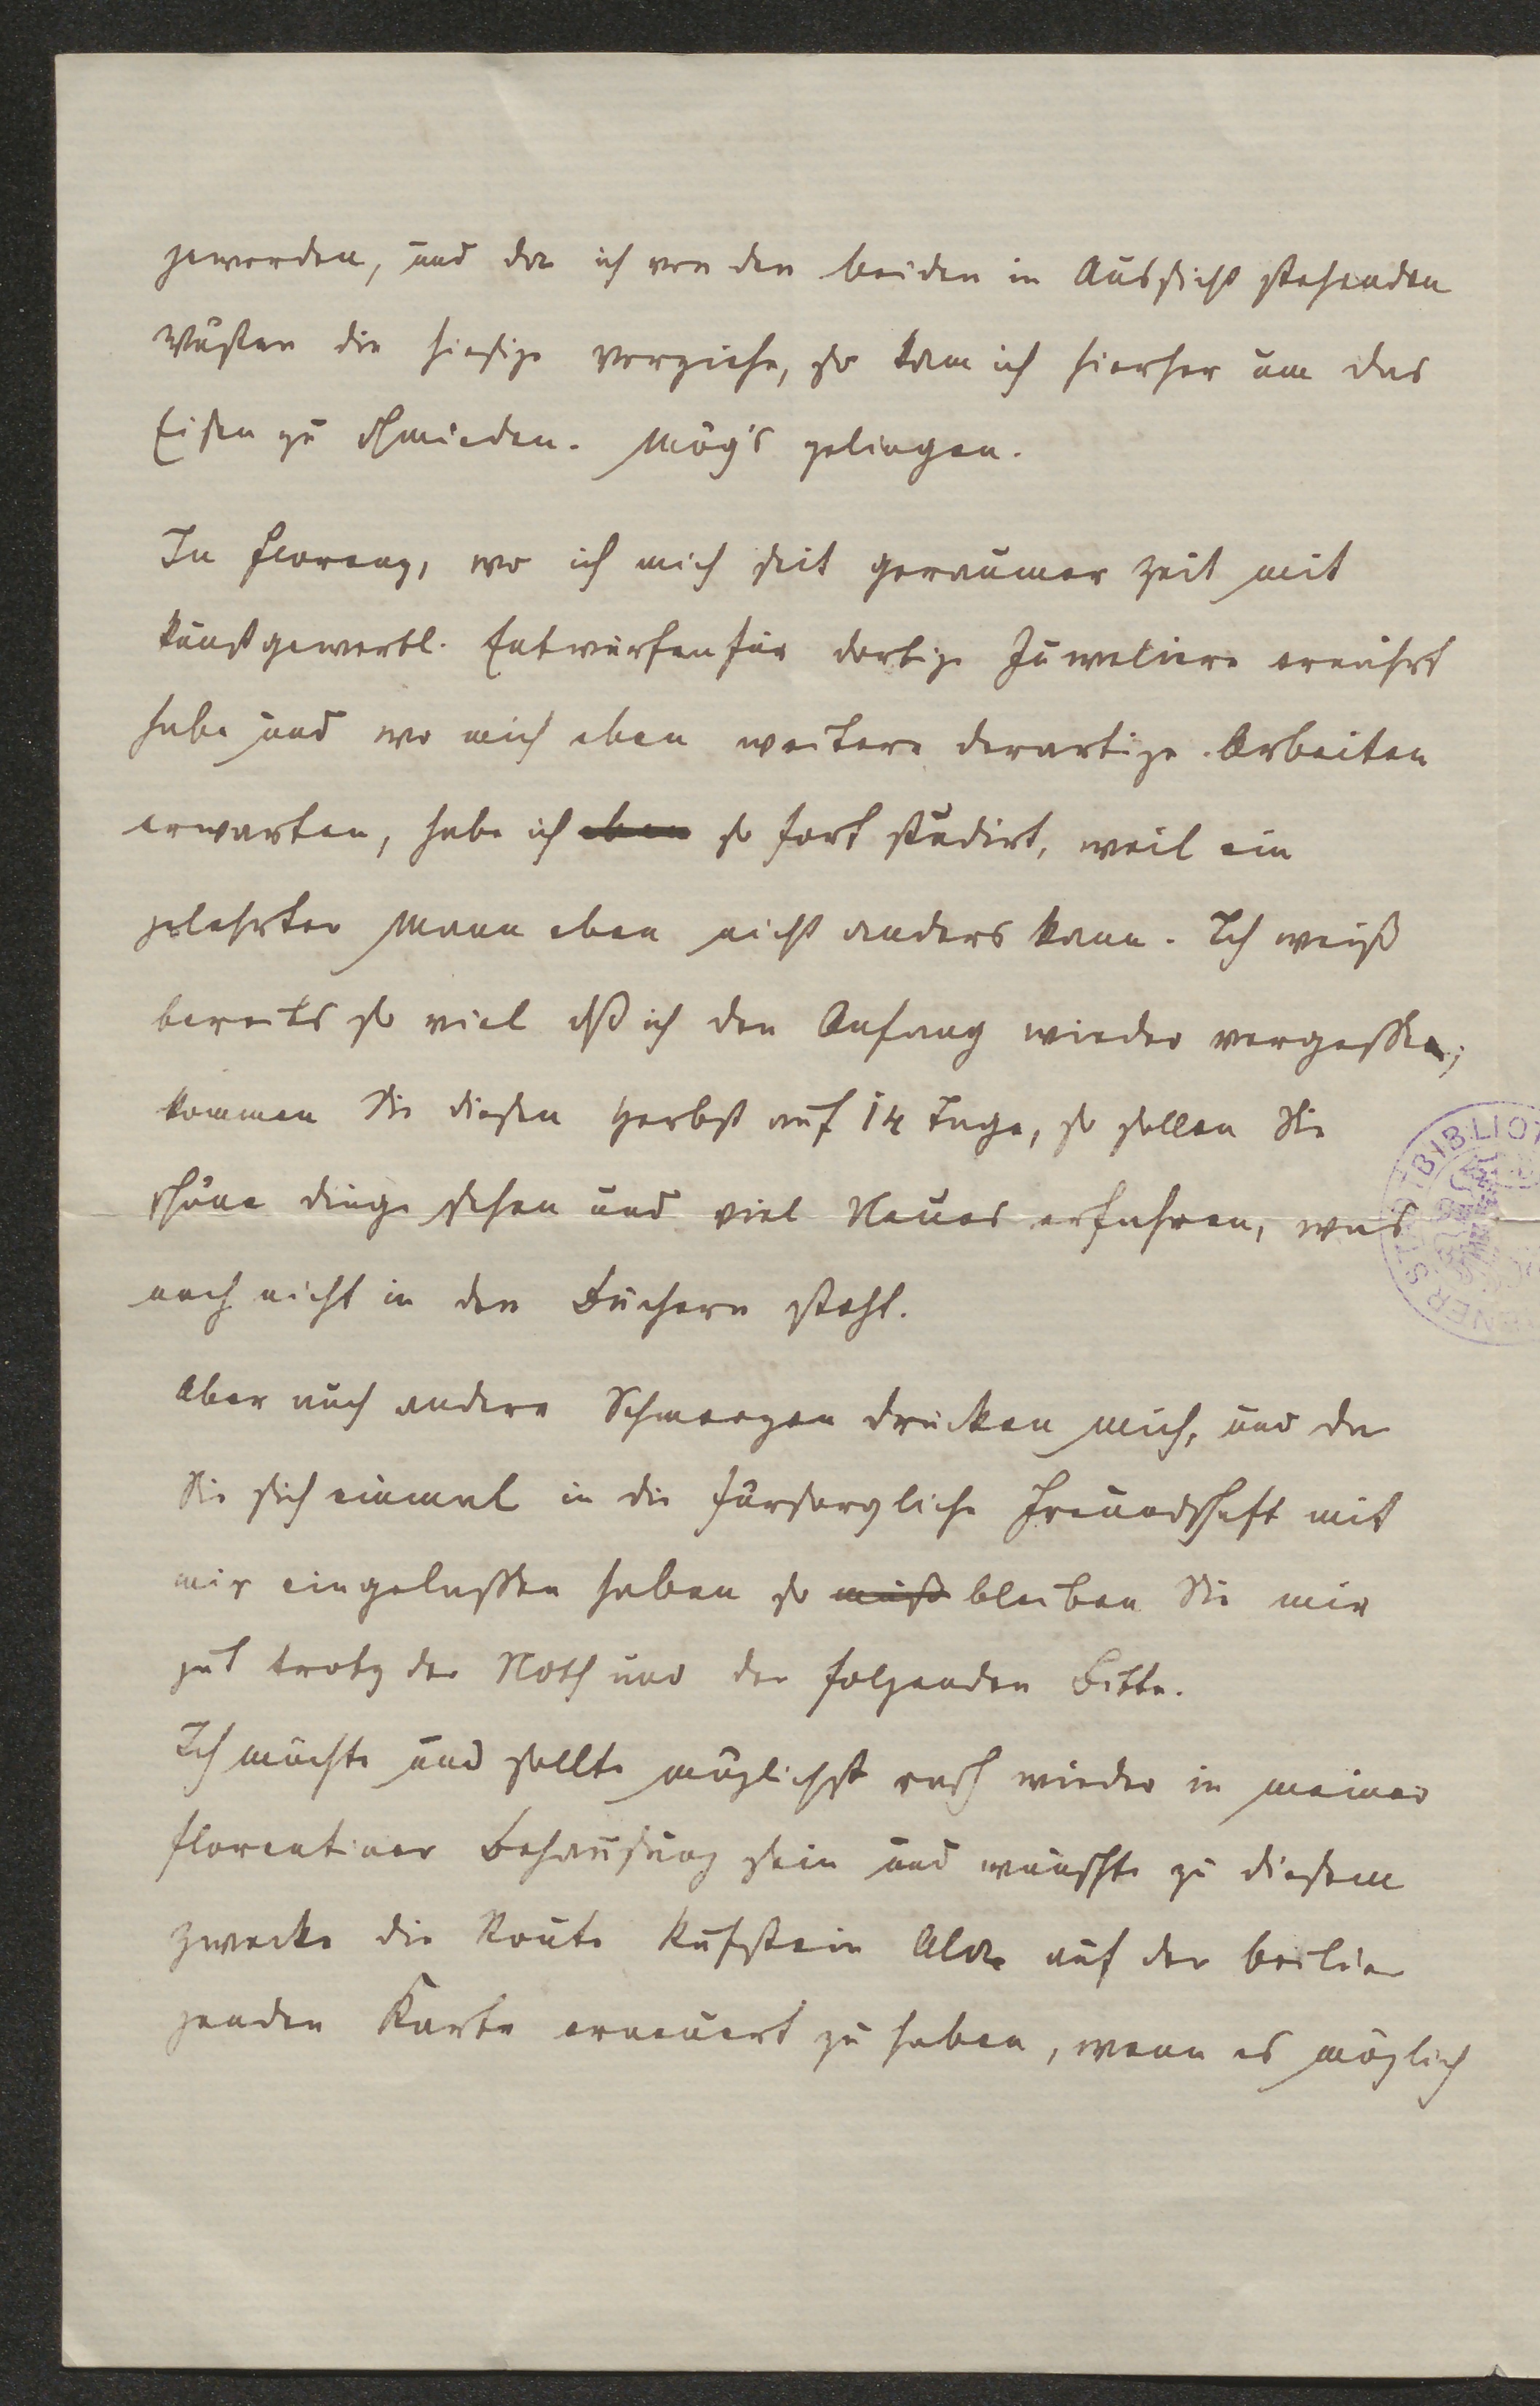 geworden, und da ich von den beiden in Aussicht stehenden
Wüsten die hiesige vorziehe, so kam ich hierher um das
Eisen zu schmieden. Mög's gelingen.
In Florenz, wo ich mich seit geraumer Zeit mit
kunstgewerbl. Entwürfen für dortige Juweliere ernährt
habe und wo mich eben weitere derartige Arbeiten
erwarten, habe ich eben so fort studirt, weil ein
gelehrter Mann eben nicht anders kann. Ich weiß
bereits so viel dß ich den Anfang wieder vergessen;
kommen Sie diesen Herbst auf 14 Tage, so sollen Sie
schöne Dinge sehen und viel Neues erfahren, was
noch nicht in den Büchern steht.
Aber auch andere Schmerzen drücken mich, und da
Sie sich einmal in die fürsorgliche Freundschaft mit
mir eingelassen haben so muß bleiben Sie mir
gut trotz der Noth und der folgenden Bitte.
Ich möchte und sollte möglichst rasch wieder in meiner
florentiner Behausung sein und wünschte zu diesem
Zwecke die Route Kufstein Ala auf der beilie
genden Karte erneuert zu haben, wenn es möglich